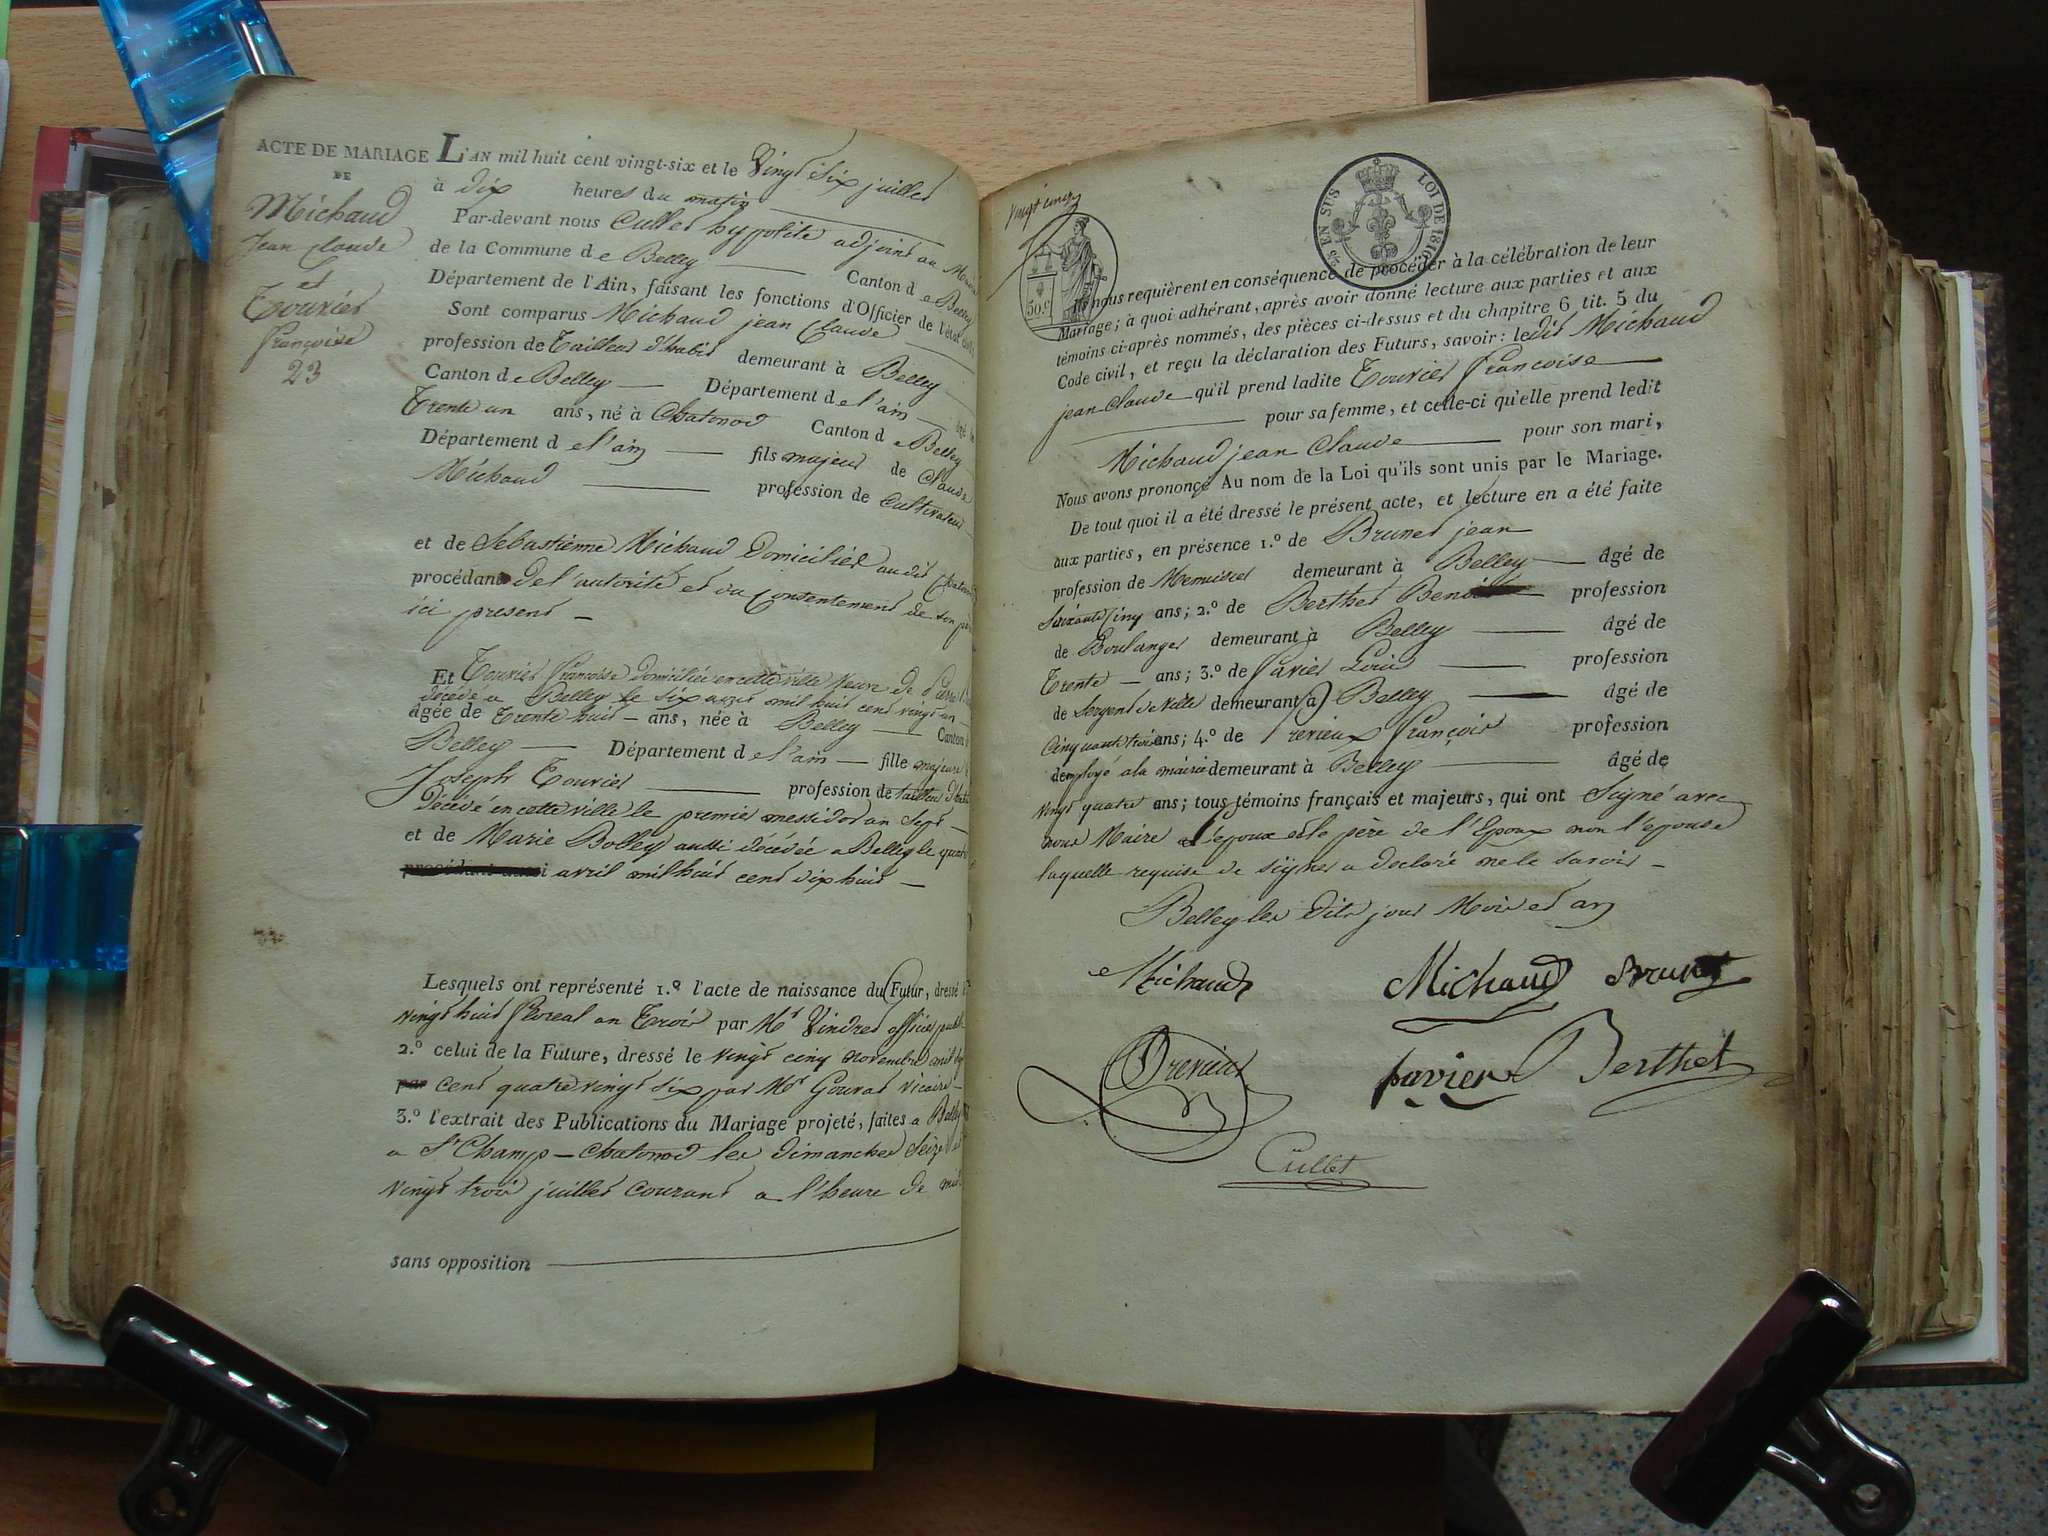 ACTE DE MARIAGE
DE
Michaud
Jean Claude
et
Tourier
françoise
23
L'AN mil huit cent vingt-six et le Vingt Six juillet
à dix heures du matin
Par-devant nous Cullet hypolite adjoint au Maire
de la Commune de Belley Canton de Belley
Département de l'Ain, faisant les fonctions d'Officier de l'état civil
Sont comparus Michaud jean Claude
profession de Tailleur d'habit demeurant à Belley
Canton de Belley Département de l'ain âgé de
Trente un ans, né à Chatonod Canton de Belley
Département de l'ain fils majeur de Claude
Michaud profession de Cultivateur
et de Sébastienne Michaud Domiciliés au dit
procédant de l'autorité et du consentement de son père
ici présent
Et Tourier françoise domiciliée en cette ville Veuve de
décédé a Belley le six mil huit cent vingt un
âgée de Trente huit ans, née à Belley Canton de
Belley Département de l'ain fille majeure
Joseph Tourier profession de tailleur d'habit
Décédé en cette ville le premier messidor an Sept
et de Marie Bolley aussi décédée a Belley le quatre
avril mil huit cent dix huit
Lesquels ont représenté 1.º l'acte de naissance du Futur, dressé le
vingt huit floreal an Trois par Mr Vindret officier public
2.º celui de la Future, dressé le vingt cinq novembre mil sept
par cent quatre vingt six par Mr Gourat vicaire
3.º l'extrait des Publications du Mariage projeté, faites a Belley
a St Champ-Chatonod les dimanches Seize et
vingt trois juillet courant a l'heure de midi
sans opposition
vingt cinq
50.c
25 EN SUS LOI DE 1816
Ils nous requièrent en conséquence de procéder à la célébration de leur
Mariage; à quoi adhérant, après avoir donné lecture aux parties et aux
témoins ci-après nommés, des pièces ci-dessus et du chapitre 6, tit. 5 du
Code civil, et reçu la déclaration des Futurs, savoir: ledit Michaud
jean Claude qu'il prend ladite Tourier françoise
pour sa femme, et celle-ci qu'elle prend ledit
Michaud jean Claude pour son mari,
Nous avons prononcé Au nom de la Loi qu'ils sont unis par le Mariage.
De tout quoi il a été dressé le présent acte, et lecture en a été faite
aux parties, en présence 1.º de Brunet jean
profession de Menuisier demeurant à Belley âgé de
Soixante Cinq ans; 2.º de Berthet Benoit profession
de Boulanger demeurant à Belley âgé de
Trente ans; 3.º de Pavier Louis profession
de Sergent de Ville demeurant à Belley âgé de
Cinquante trois ans; 4.º de Drevieux François profession
d'employé a la mairie demeurant à Belley âgé de
vingt quatre ans; tous témoins français et majeurs, qui ont Signé avec
nous Maire l'epoux et le père de l'Epoux non l'epouse
laquelle requise de signer a declaré ne le savoir
Belley les dits jour Mois et an
Michaud Michaud Brunet
Drevieux pavier Berthet
Cullet